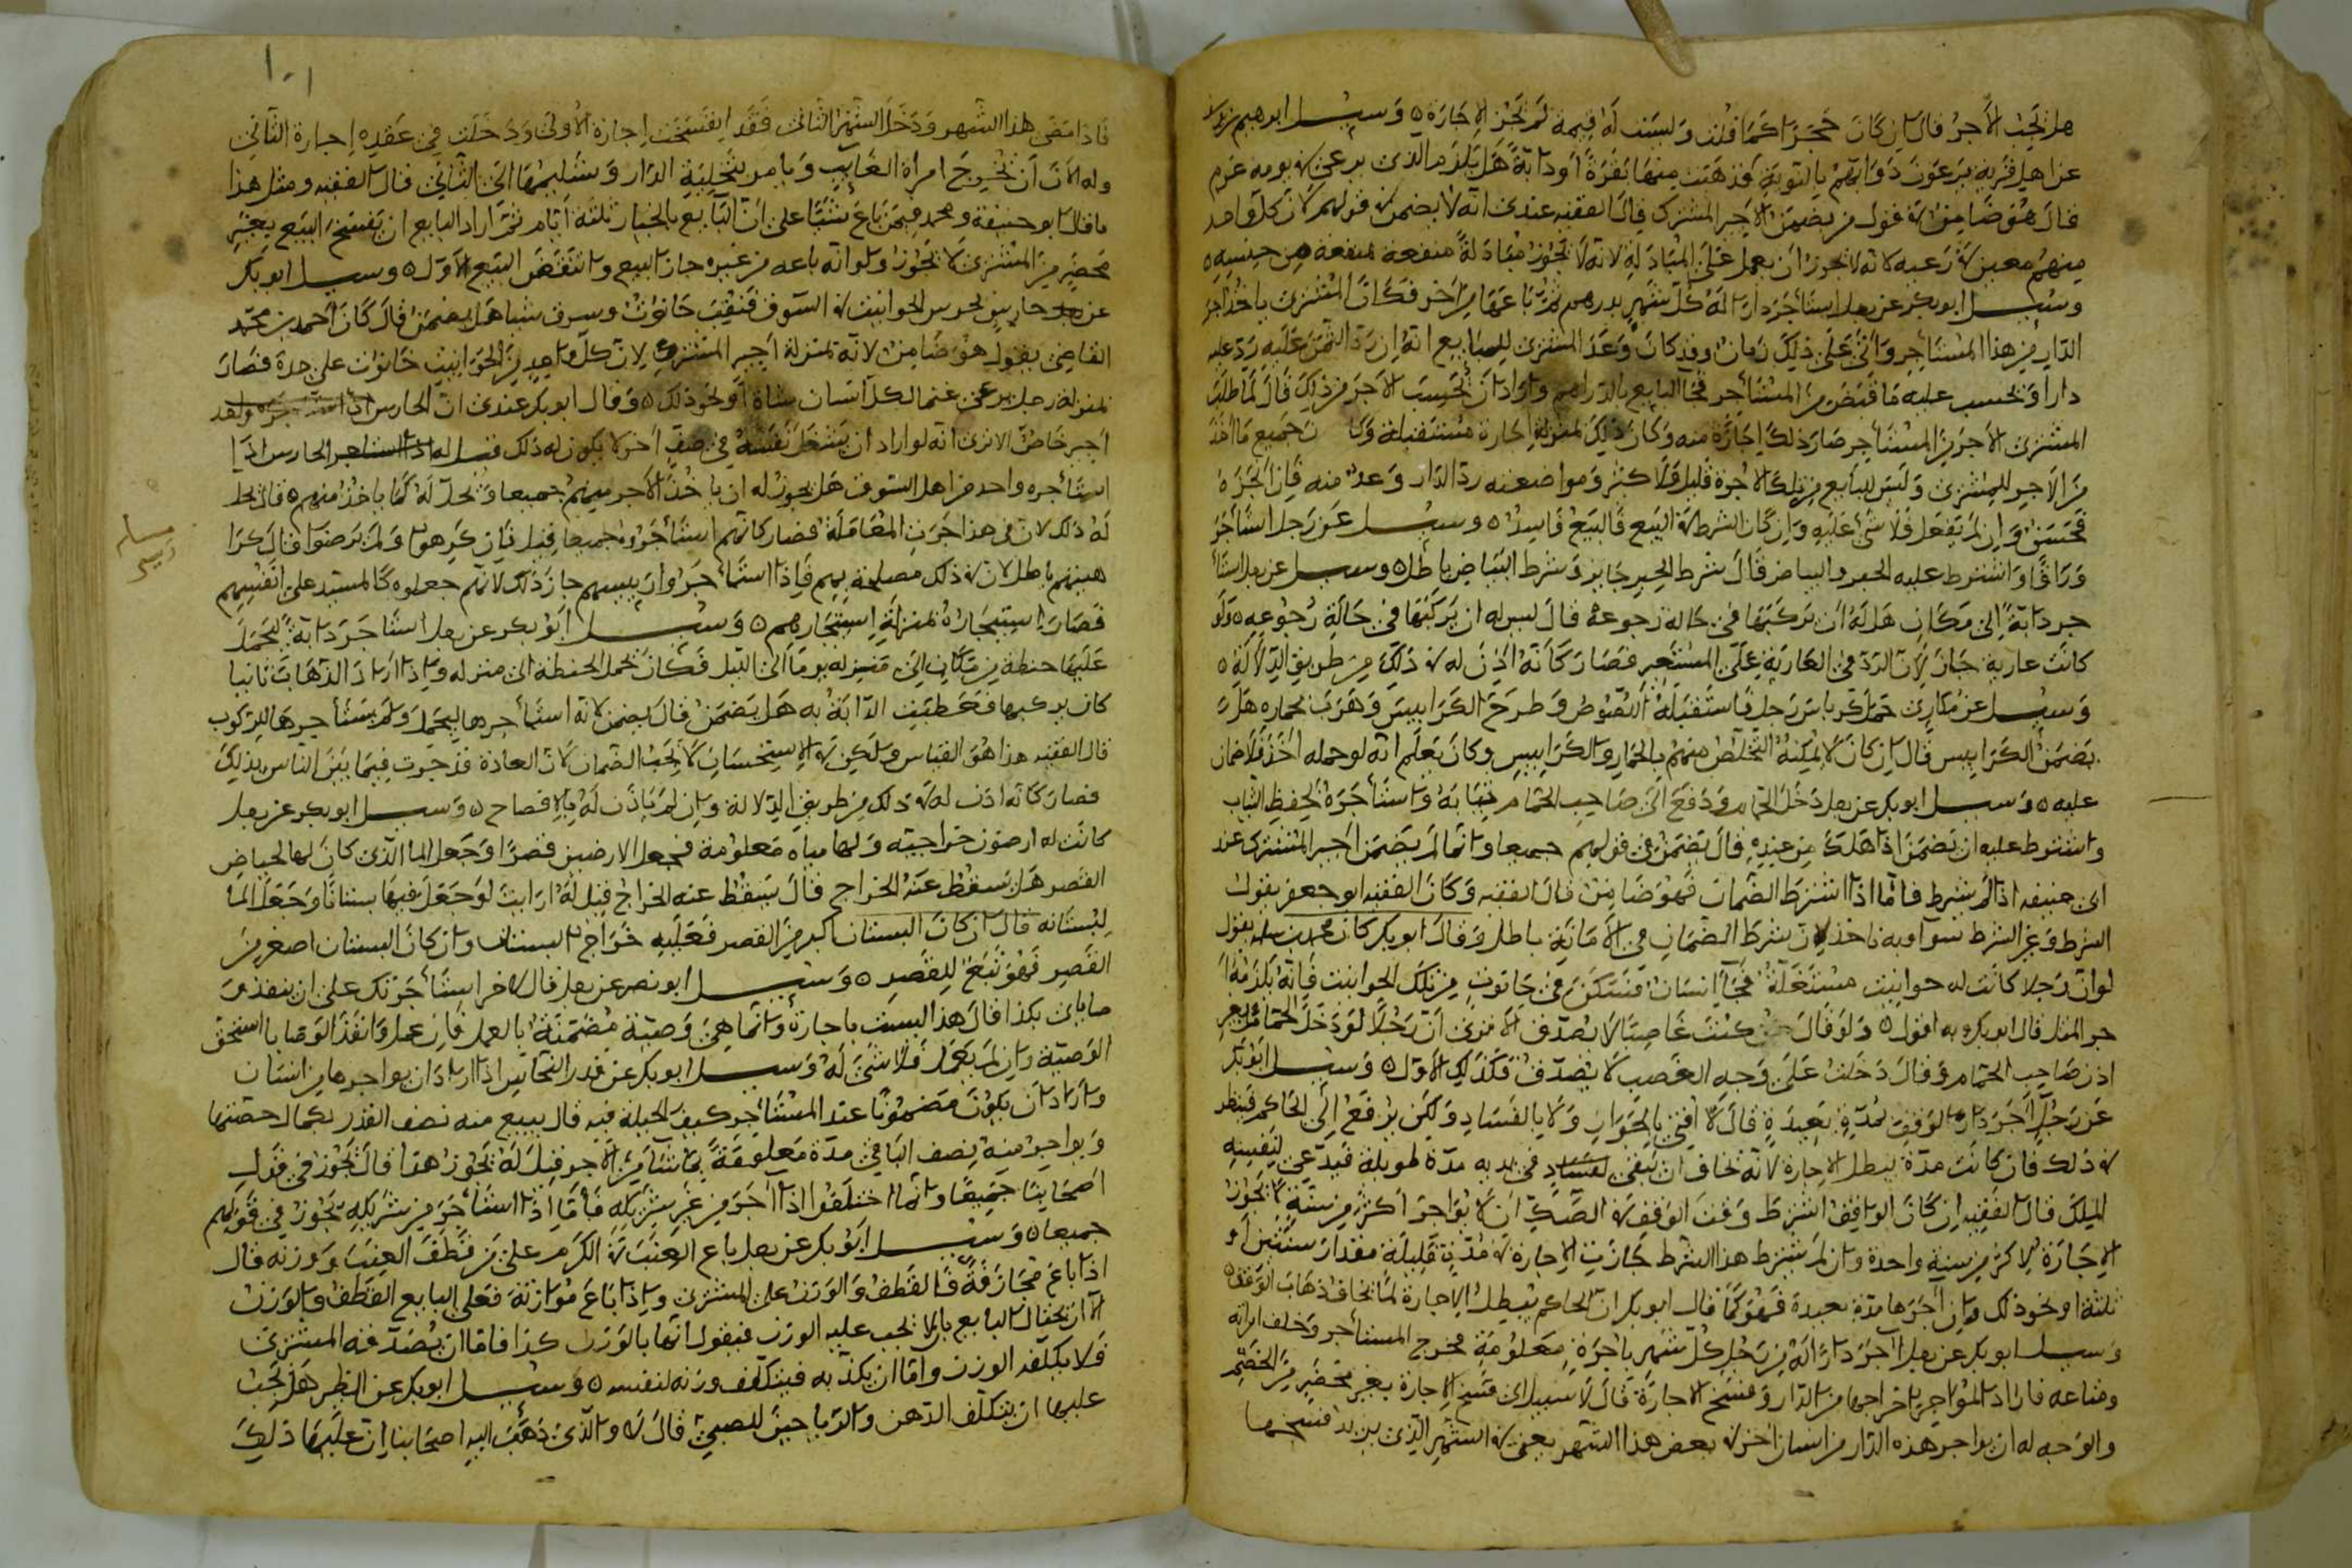 هل يجب الأجر قال إن كان حجرا كما قلت وليست له قيمة لم تجز الإجارة ٥ وسئل ابرهيم بن يوسف
عن اهل قرية يرعون دوابهم بالنوبة فذهبت منها بقرة او دابة هل يلزم الذي يرعى في يومه غرم
قال هو ضامن في قول من يضمن الأجير المشترك قال الفقيه عندي انه لا يضمن في قولهم لان كل واحد
منهم معين في رعيه لانه لا يجوز ان يعمل على المبادلة لانه لا يجوز مبادلة منفعة بمنفعة من جنسه ٥
وسئل ابو بكر عن رجل استأجر دارا له كل شهر بدرهم ثم باعها من آخر فكان المشتري ياخذ اجر
الدار من هذا المستأجر واتى على ذلك زمان وقد كان وعد المشتري للبايع انه إن رد الثمن عليه رد عليه
دارا ويحسب عليه ما قبض من المستأجر فجا البايع بالدراهم واراد أن يحسب الأجر من ذلك قال لما طلب
المشتري الأجر من المستأجر صار ذلك إجازة منه وكان ذلك بمنزلة إجارة مستقبلة جميع ما اخذ
من الأجر للمشتري وليس للبايع من تلك الأجرة قليل ولا كثير ومواضعته رد الدار وعد منه فإن انجزه
فحسن وإن لم يفعل فلا شيء عليه وإن كان الشرط في البيع فالبيع فاسد ٥ وسئل عن رجل استأجر
وراقا واشترط عليه الحبر والبياض قال شرط الحبر جايز وشرط البياض باطل ٥ وسئل عن رجل استأ
جر دابة إلى مكان هل له أن يركبها في حالة رجوعه قال ليس له ان يركبها في حالة رجوعه ٥ ولو
كانت عارية جاز لأن الرد في العارية على المستعير فصار كأنه أذن له في ذلك من طريق الدلالة ٥
وسئل عن مكاري حمل كرباس رجل فاستقبله اللصوص وطرح الكرابيس وهرب بحماره هل
يضمن الكرابيس قال إن كان لا يمكنه التخلص منهم بالحمار والكرابيس وكان يعلم انه لو حمله اخذ فلا ضمان
عليه ٥ وسئل ابو بكر عن رجل دخل الحمام ودفع الى صاحب الحمام ثيابه واستأجره لحفظ الثياب
واشترط عليه ان يضمن اذا هلك من عنده قال يضمن في قولهم جميعا وانما لم يضمن اجير المشترك عند
ابي حنيفه اذا لم يشرط فاما اذا اشترط الضمان فهو ضامن قال الفقيه وكان الفقيه ابو جعفر يقول
الشرط وغير الشرط سوآ وبه ناخذ لان شرط الضمان في الأمانة باطل وقال ابو بكر كان محمد بن سلمة يقول
لو ان رجلا كانت له حوانيت مستغلة فجآ انسان فسكن في حانوت من تلك الحوانيت فانه يلزمه ا
جر المثل قال ابو بكر وبه اقول ٥ ولو قال كنت غاصبا لا يصدق الا ترى أن رجلا لو دخل الحمام بغير
اذن صاحب الحمام وقال دخلت على وجه الغصب لا يصدق فكذلك الأول ٥ وسئل ابو بكر
عن رجل آجر دار الوقف لمدة بعيدة قال لا افتي بالجواز ولا بالفساد ولكن يرفع إلى الحاكم فينظر
في ذلك فان كانت مدة يبطل الإجارة لانه يخاف ان تبقى في يديه مدة طويلة فيدعي لنفسه
الملك قال الفقيه إن كان الواقف اشترط وقت الوقف في الصك ان لا يؤاجر اكثر من سنة لا تجوز
الإجارة لأكثر من سنة واحدة وإن لم يشترط هذا الشرط جازت الإجارة في مدة قليلة مقدار سنتين أو
ثلثة او نحو ذلك وإن أجرها مدة بعيدة فهو كما قال ابو بكر ان الحاكم يبطل الإجارة لما يخاف ذهاب الوقف ٥
وسئل ابو بكر عن رجل آجر دارا له من رجل كل شهر باجرة معلومة فخرج المستأجر وخلف امراته
ومتاعه فاراد المؤاجر اخراجها من الدار وفسخ الاجارة قال لا سبيل الى فسخ الاجارة بغير محضر من الخصم
والوجه له ان يواجر هذه الدار من انسان اخر في بعض هذا الشهر يعني في الشهر الذي يريد فسخها
١٠١
فاذا مضى هذا الشهر ودخل الشهر الثاني فقد انفسخت اجارة الأولى ودخلت في عقده إجارة الثاني
وله الآن أن يخرج امراة الغايب ويامر بتخلية الدار وتسليمها الى الثاني قال الفقيه ومثل هذا
ما قال ابو حنيفة ومحمد فيمن باع شيئا على ان البايع بالخيار ثلثة أيام ثم اراد البايع ان يفسخ البيع بغير
محضر من المشتري لا يجوز ولو انه باعه من غيره جاز البيع وانتقض البيع الأول ٥ وسئل ابو بكر
عن حارس يحرس الحوانيت في السوق فنقب حانوت وسرق شيا هل يضمن قال كان احمد بن محمد
القاضي يقول هو ضامن لانه بمنزلة اجير المشترك لان كل واحد من الحوانيت حانوت على حدة فصار
بمنزلة رجل يرعى غنما لكل انسان شاة او نحو ذلك ٥ وقال ابو بكر عندي ان الحارس
اجير خاص الا ترى انه لو اراد ان يشغل نفسه في صف آخر لا يكون له ذلك قيل له الحارس اذا
استأجره واحد من اهل السوق هل يجوز له ان ياخذ الأجر منهم جميعا ويحل له كما ياخذ منهم ٥ قال يحل
له ذلك لان في هذا جرت المعاملة فصار كانهم استأجروه جميعا قيل فإن كرهوا ولم يرضوا قال كرا
هيتهم باطل لان في ذلك مصلحة بهم فاذا استأجر وا رييسهم جاز ذلك لانهم جعلوه كالمستبد على انفسهم
فصار استيجاره بمنزلة استيجارهم ٥ وسئل ابو بكر عن رجل استاجر دابة ليحمل
عليها حنطة من مكان الى منزله يوما الى الليل فكان يحمل الحنطة الى منزله واذا اراد الذهاب ثانيا
كان يركبها فعطبت الدابة به هل يضمن قال يضمن لانه استأجرها ليحمل ولم يستأجرها للركوب
قال الفقيه هذا هو القياس ولكن في الاستحسان لا يجب الضمان لان العادة قد جرت فيما بين الناس بذلك
فصار كانه اذن له في ذلك من طريق الدلالة وإن لم يأذن له بالإفصاح ٥ وسئل ابو بكر عن رجل
كانت له ارضون خراجية ولها مياه معلومة فجعل الارضين قصرا وجعل الما الذي كان لها لحياض
القصر هل يسقط عنه الخراج قال يسقط عنه الخراج قيل له ارايت لو جعل فيها بستانا وجعل الما
لبستانه قال ان كان البستان اكبر من القصر فعليه خراج البستان وان كان البستان اصغر من
القصر فهو تبع للقصر ٥ وسئل ابو نصر عن رجل قال لآخر استأجرتك على ان تنفذ و
صاياي بكذا قال هذا ليست باجارة وانما هي وصية مضمنة بالعمل فإن عمل وانفذ الوصايا استحق
الوصية وان لم يعمل فلا شيء له وسئل ابو بكر عن قدر النحاس اذا اراد ان يواجرها من انسان
واراد ان يكون مضمونا عند المستأجر كيف الحيلة فيه قال يبيع منه نصف القدر بكمال حصتها
ويواجر منه نصف الباقي مدة معلومة بما شآ من الأجر قيل له يجوز هذا قال يجوز في قول
أصحابنا جميعا وانما اختلفوا اذا آجر من غير شريكه فاما اذا استأجر من شريكه يجوز في قولهم
جميعا ٥ وسئل ابو بكر عن رجل باع العنب في الكرم على من قطف العنب ووزنه قال
اذا باع مجازفة فالقطف والوزن على المشتري واذا باع موازنة فعلى البايع القطف والوزن
الا ان يحتال البايع بان لا يجب عليه الوزن فيقول انها بالوزن كذا فاما ان يصدقه المشتري
فلا يكلفه الوزن واما ان يكذبه فيتكلف وزنه لنفسه ٥ وسئل ابو بكر عن الظير هل يجب
عليها ان يتكلف الدهن والرياحين للصبي قال لا والذي ذهب اليه اصحابنا إن عليها ذلك